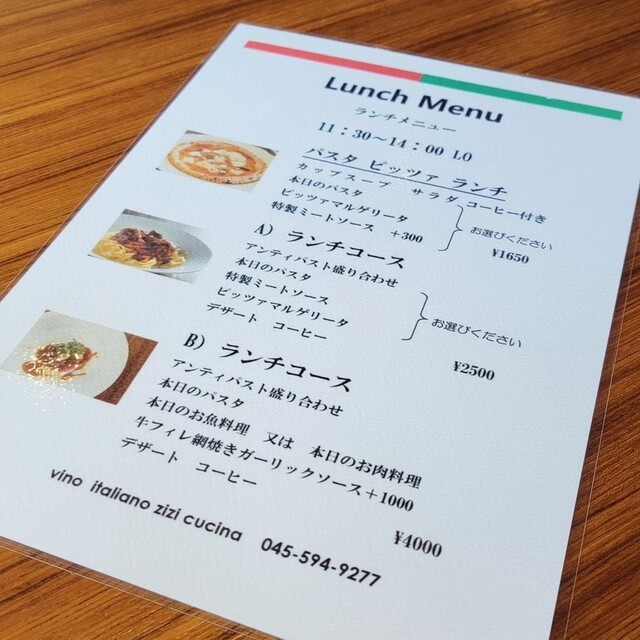 Lunch Menu
ランチメニュー
11：30～14：00 LO
パスタ ピッツァ ランチ
カップスープ サラダ コーヒー付き
本日のパスタ
ピッツァマルゲリータ
特製ミートソース +300
お選びください
¥1650
A) ランチコース
アンティパスト盛り合わせ
本日のパスタ
特製ミートソース
ピッツァマルゲリータ
お選びください
デザート コーヒー
¥2500
B) ランチコース
アンティパスト盛り合わせ
本日のパスタ
本日のお魚料理 又は 本日のお肉料理
牛フィレ網焼きガーリックソース+1000
デザート コーヒー
¥4000
vino italiano zizi cucina 045-594-9277